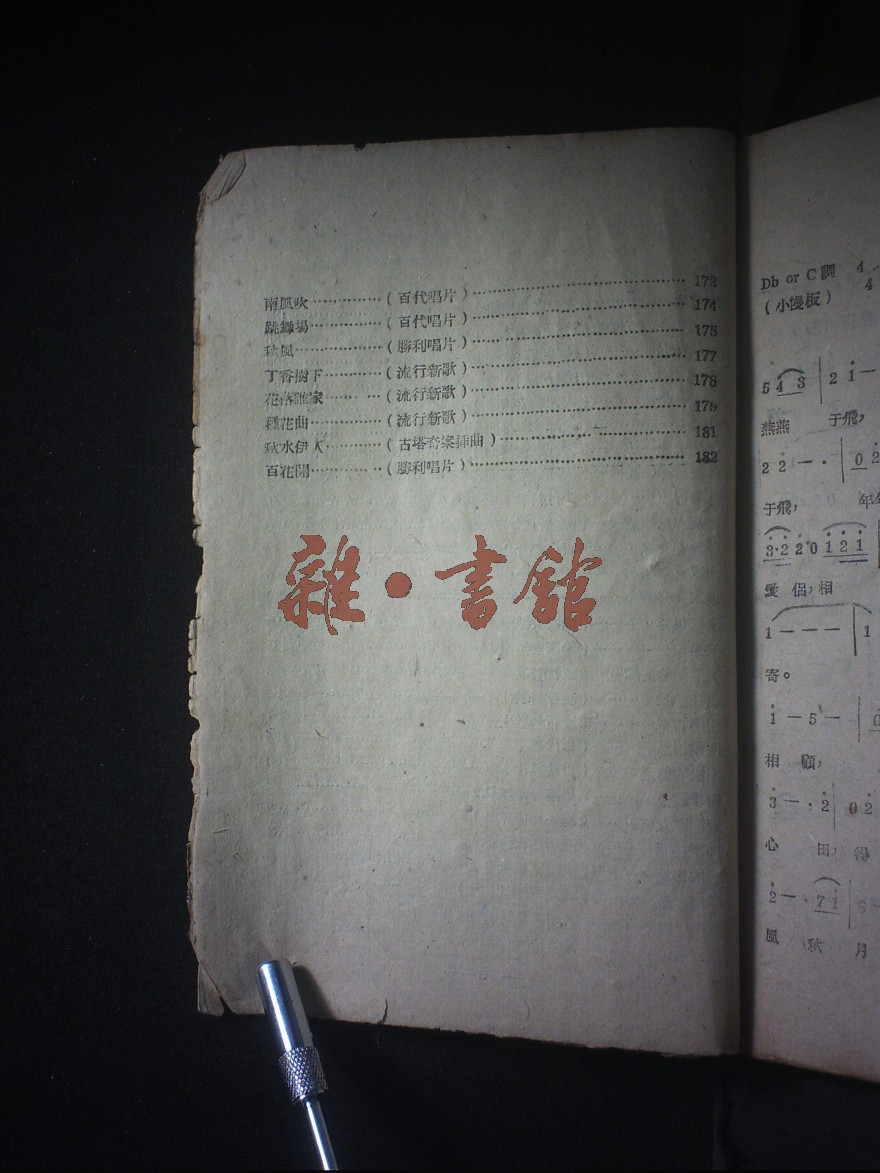 南風吹…………(百代唱片)……………………………172
跳舞場…………(百代唱片)……………………………174
秋風……………(勝利唱片)……………………………175
丁香樹下………(流行新歌)……………………………177
花落誰家………(流行新歌)……………………………178
種花曲…………(流行新歌)……………………………179
秋水伊人………(古塔奇案插曲)………………………181
百花開…………(勝利唱片)……………………………182
雜·書館
Db or C 調 4/4
(小慢板)
5 4 3 | 2 1 —
燕燕 于飛,
2 2 — · | 0 2
于飛, 年
3·2 2 0 1 2 1
愛侶,相
1 — — — | 1
寄。
1 — 5 — | 0
相 顧,
3 — · 2 | 0 2
心 田,得
2 — · 7 1 | 6 —
風 秋 月